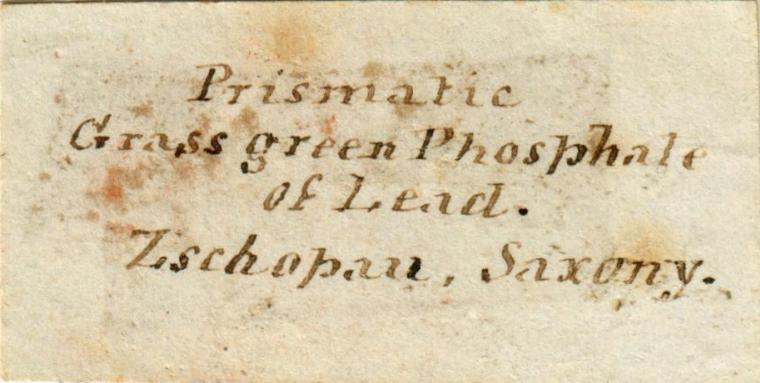 Prismatic
Grass green Phosphate
of Lead.
Zschopau, Saxony.